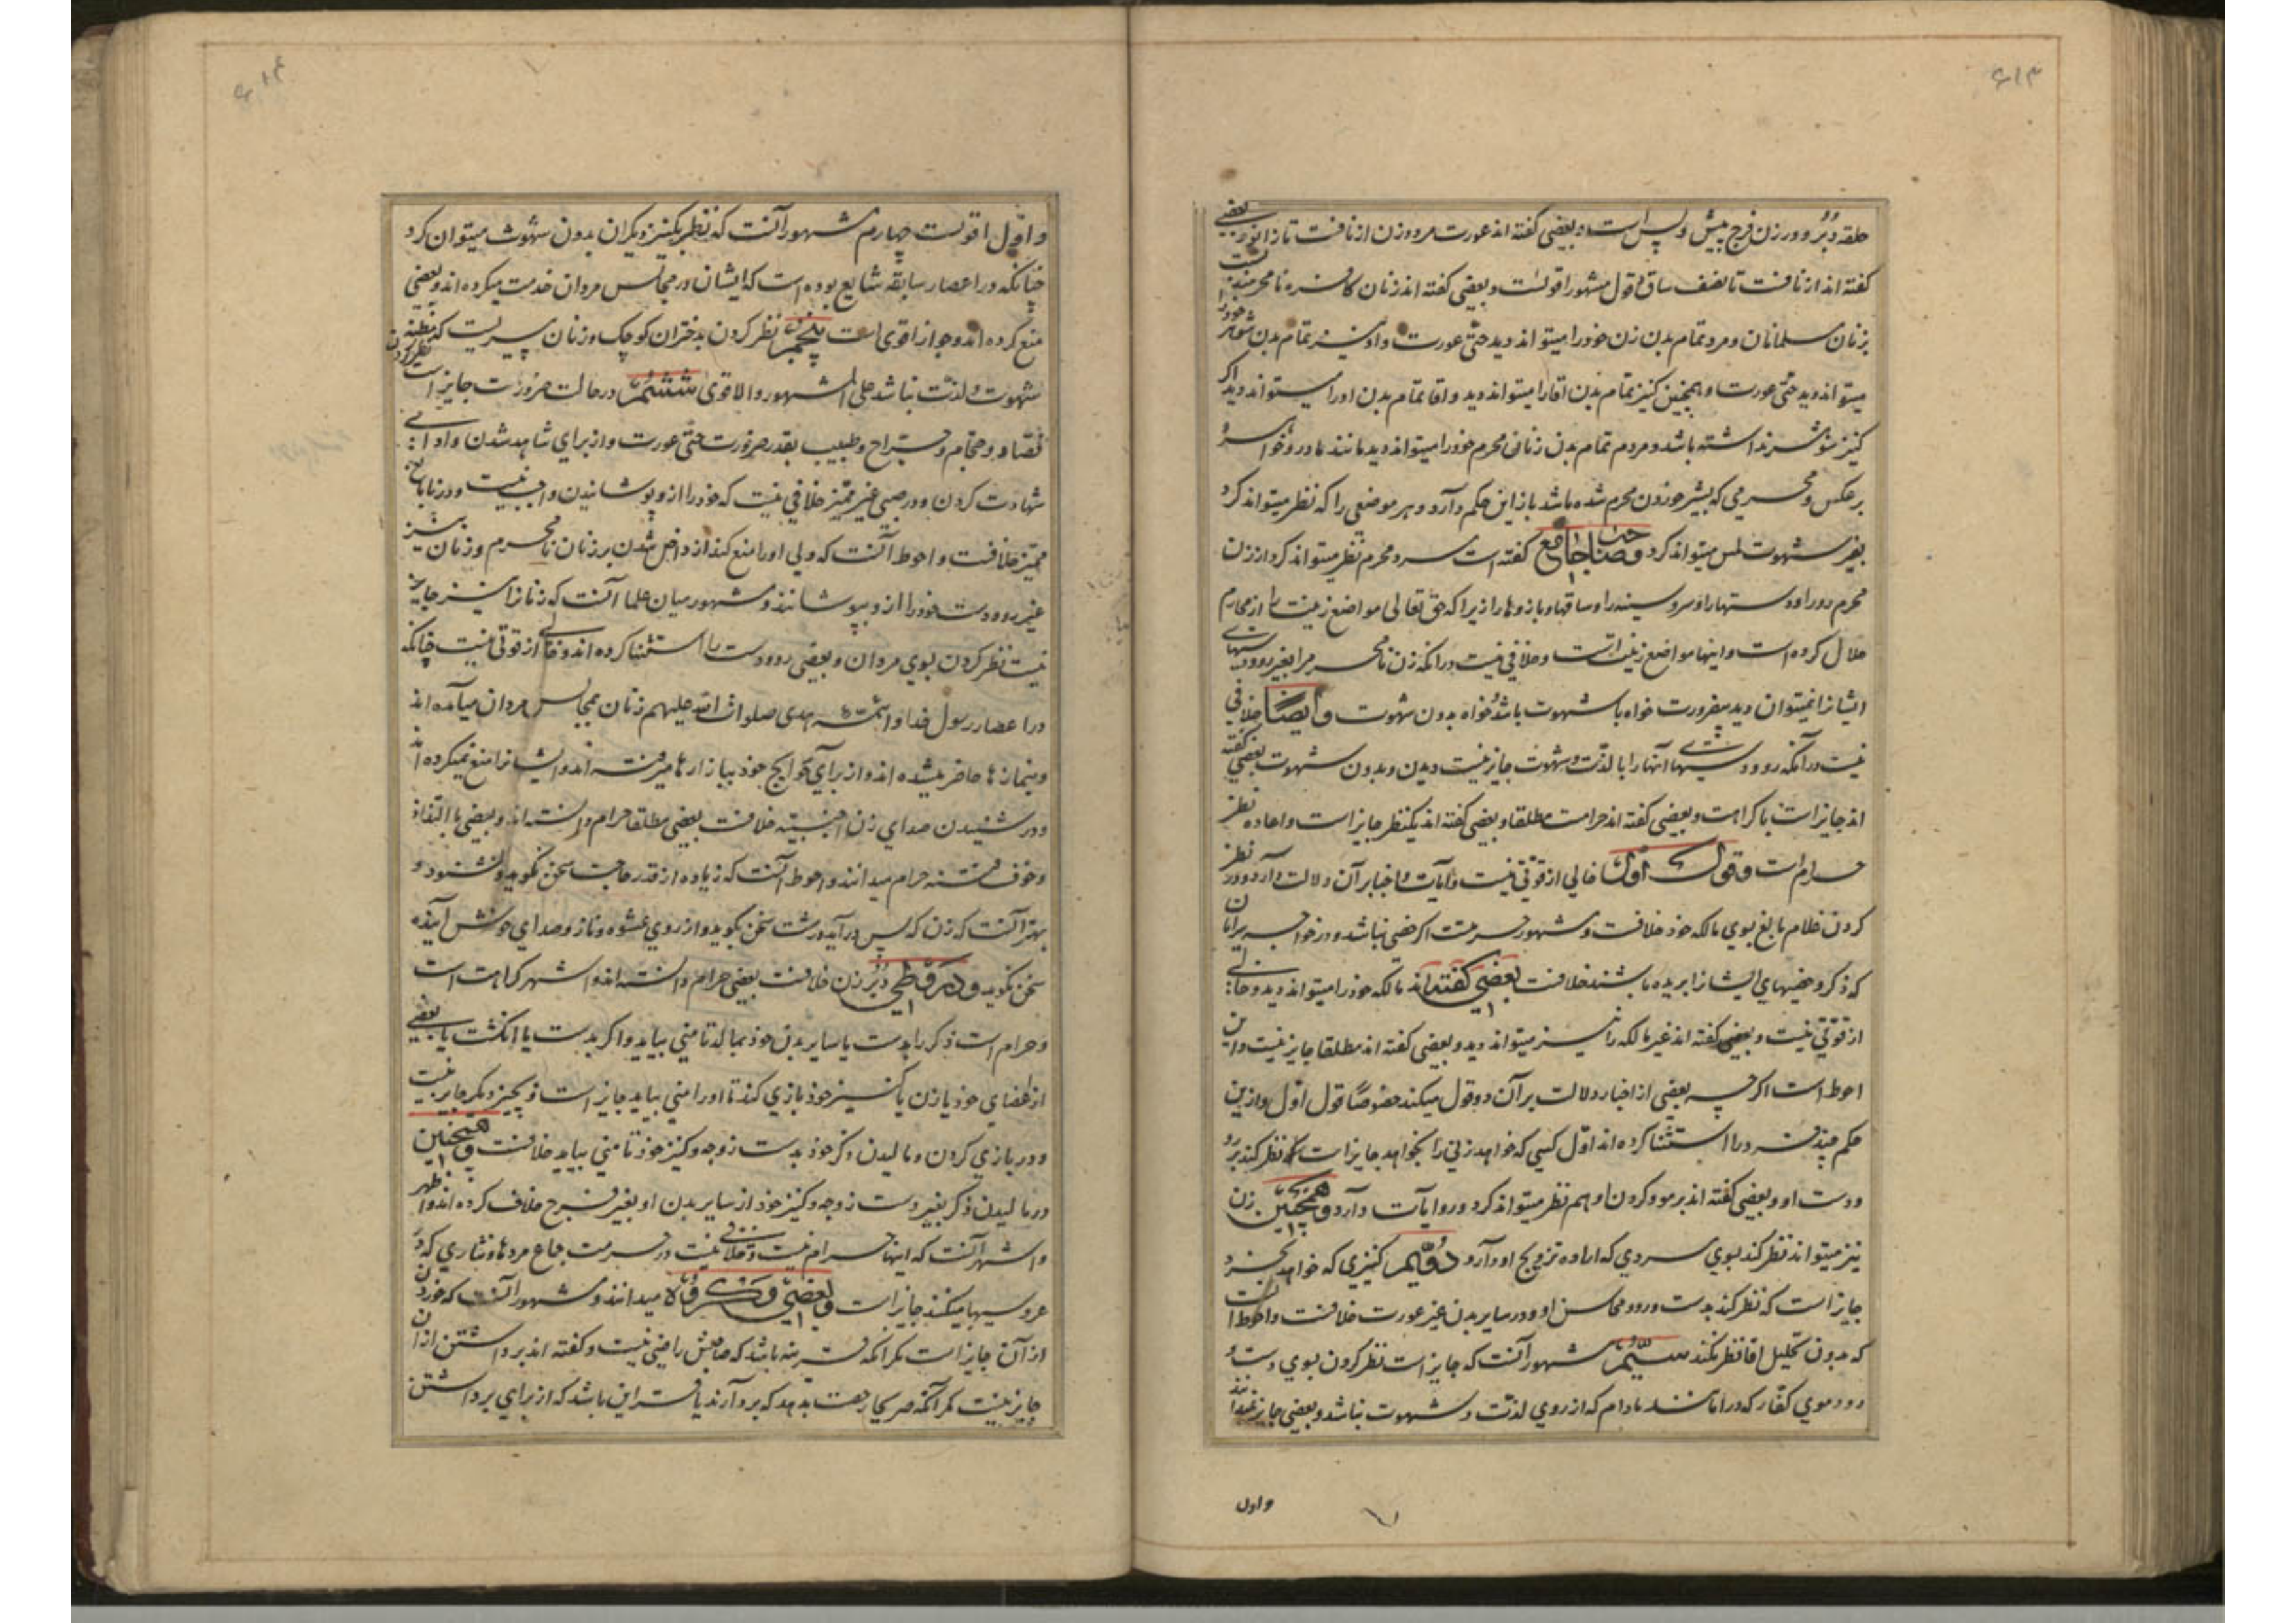 ۶۱۳
حلقه دبر و در زن فرج پیش و پس است و بعضی گفته اند عورت مرد و زن از نافست تا زانو و بعضی
گفته اند از نافست تا نصف ساق و قول مشهور اقویست و بعضی گفته اند زنان کافره نامحرمند نسبت
بزنان مسلمانان و مرد تمام بدن زن خود را میتواند دید حتی عورت و او نیز تمام بدن شوهر خود را
میتواند دید حتی عورت و همچنین کنیز تمام بدن اقا را میتواند دید و اقا تمام بدن او را میتواند دید اگر
کنیز شوهر نداشته باشد و مردم تمام بدن زنان محرم خود را میتواند دید مانند مادر و خواهر و
برعکس و محرمی که بشیر خوردن محرم شده باشد باز این حکم دارد و هر موضعی را که نظر میتواند کرد
بغیر شهوت لمس میتواند کرد و صاحب جامع گفته است مرد محرم نظر میتواند کرد از زن
محرم رو را و دستها را و سر و سینه را و ساقها و بازوها را زیرا که حق تعالی مواضع زینت را از محارم
حلال کرده است و اینها مواضع زینت است و خلافی نیست در انکه زن نامحرم را بغیر رو و دستهای
ایشانرا نمیتوان دید بیضرورت خواه با شهوت باشد و خواه بدون شهوت و ایضا خلافی
نیست در انکه رو و دستهای آنها را با لذت و شهوت جایز نیست دیدن و بدون شهوت بعضی گفته
اند جایز است با کراهت و بعضی گفته اند حرامست مطلقا و بعضی گفته اند یکنظر جایز است و اعاده نظر
حرام است و قول اول خالی از قوتی نیست و آیات و اخبار بر آن دلالت دارد و در نظر
کردن غلام بالغ بسوی مالکه خود خلافست و مشهور حرمت است اگر خصی نباشد و در خواجه سرایان
که ذکر و خصیهای ایشانرا بریده باشند خلافست بعضی گفته اند مالکه خود را میتواند دید و خالی
از قوتی نیست و بعضی گفته اند غیر مالکه را نیز میتواند دید و بعضی گفته اند مطلقا جایز نیست و این
احوط است اگر چه بعضی از اخبار دلالت بر آن دو قول میکند خصوصا قول اول و ازین
حکم چند فرد را استثنا کرده اند اول کسی که خواهد زنی را بخواهد جایز است که نظر کند برو
و دست او و بعضی گفته اند بر مو و کردن او هم نظر میتواند کرد و روایات دارد و همچنین زن
نیز میتواند نظر کند بسوی مردی که اراده تزویج او دارد دویم کنیزی که خواهد بخرد
جایز است که نظر کند بدست و رو و محاسن او و در سایر بدن غیر عورت خلافست و احوط انست
که بدون تحلیل اقا نظر نکند سیم مشهور آنست که جایز است نظر کردن بسوی دست و
رو و موی کفار که در امانند مادام که از روی لذت و شهوت نباشد و بعضی جایز نمیدانند
و اول
۶۱۴
و اول اقویست چهارم مشهور آنست که نظر بکنیز دیگران بدون شهوت میتوان کرد
چنانکه در اعصار سابقه شایع بوده است که ایشان در مجالس مردان خدمت میکرده اند و بعضی
منع کرده اند و جواز اقوی است پنجم نظر کردن بدختران کوچک و زنان پیریست که مظنه
شهوت و لذت نباشد علی المشهور و الاقوی ششم در حالت ضرورت جایز است نظر کردن
فصاد و حجام و جراح و طبیب بقدر ضرورت حتی عورت و از برای شاهد شدن و ادای
شهادت کردن و در صبی غیر ممیز خلافی نیست که خود را ازو پوشانیدن واجب نیست و در نابالغ
ممیز خلافست و احوط آنست که ولی او را منع کند از داخل شدن بر زنان نامحرم و زنان نیز
غیر رو و دست خود را ازو بپوشانند و مشهور میان علما آنست که زنانرا نیز جایز
نیست نظر کردن بسوی مردان و بعضی رو و دست را استثنا کرده اند و خالی از قوتی نیست چنانکه
در اعصار رسول خدا و ائمه هدی صلوات الله علیهم زنان بمجالس مردان میآمده اند
و بنمازها حاضر میشده اند و از برای حوایج خود ببازارها میرفته اند و ایشانرا منع نمیکرده اند
و در شنیدن صدای زن اجنبیه خلافست بعضی مطلقا حرام دانسته اند و بعضی با التذاذ
و خوف فتنه حرام میدانند و احوط آنست که زیاده از قدر حاجت سخن نگوید و نشنود و
بهتر آنست که زن که پس در آید درشت سخن بگوید و از روی عشوه و ناز و صدای خوش آینده
سخن نگوید و در وطی دبر زن خلافست بعضی حرام دانسته اند و اشهر کراهت است
و حرام است ذکر را بدست یا سایر بدن خود بمالد تا منی بیاید و اگر بدست یا انگشت یا بعضی
از اعضای خود با زن یا کنیز خود بازی کند تا او را منی بیاید جایز است و بچیز دیگر جایز نیست
و در بازی کردن و مالیدن ذکر خود بدست زوجه و کنیز خود تا منی بیاید خلافست و همچنین
در مالیدن ذکر بغیر دست زوجه و کنیز خود از سایر بدن او بغیر فرج خلاف کرده اند و اظهر
و اشهر آنست که اینها حرام نیست و خلافی نیست در حرمت جماع مردها و نثاری که در
عروسیها میکنند جایز است و بعضی مکروه میدانند و مشهور آنست که خوردن
از آن جایز است مگر آنکه قرینه باشد که صاحبش راضی نیست و گفته اند برداشتن از ان
جایز نیست مگر آنکه صریحا رخصت بدهد که بردارند یا قراین باشد که از برای برداشتن